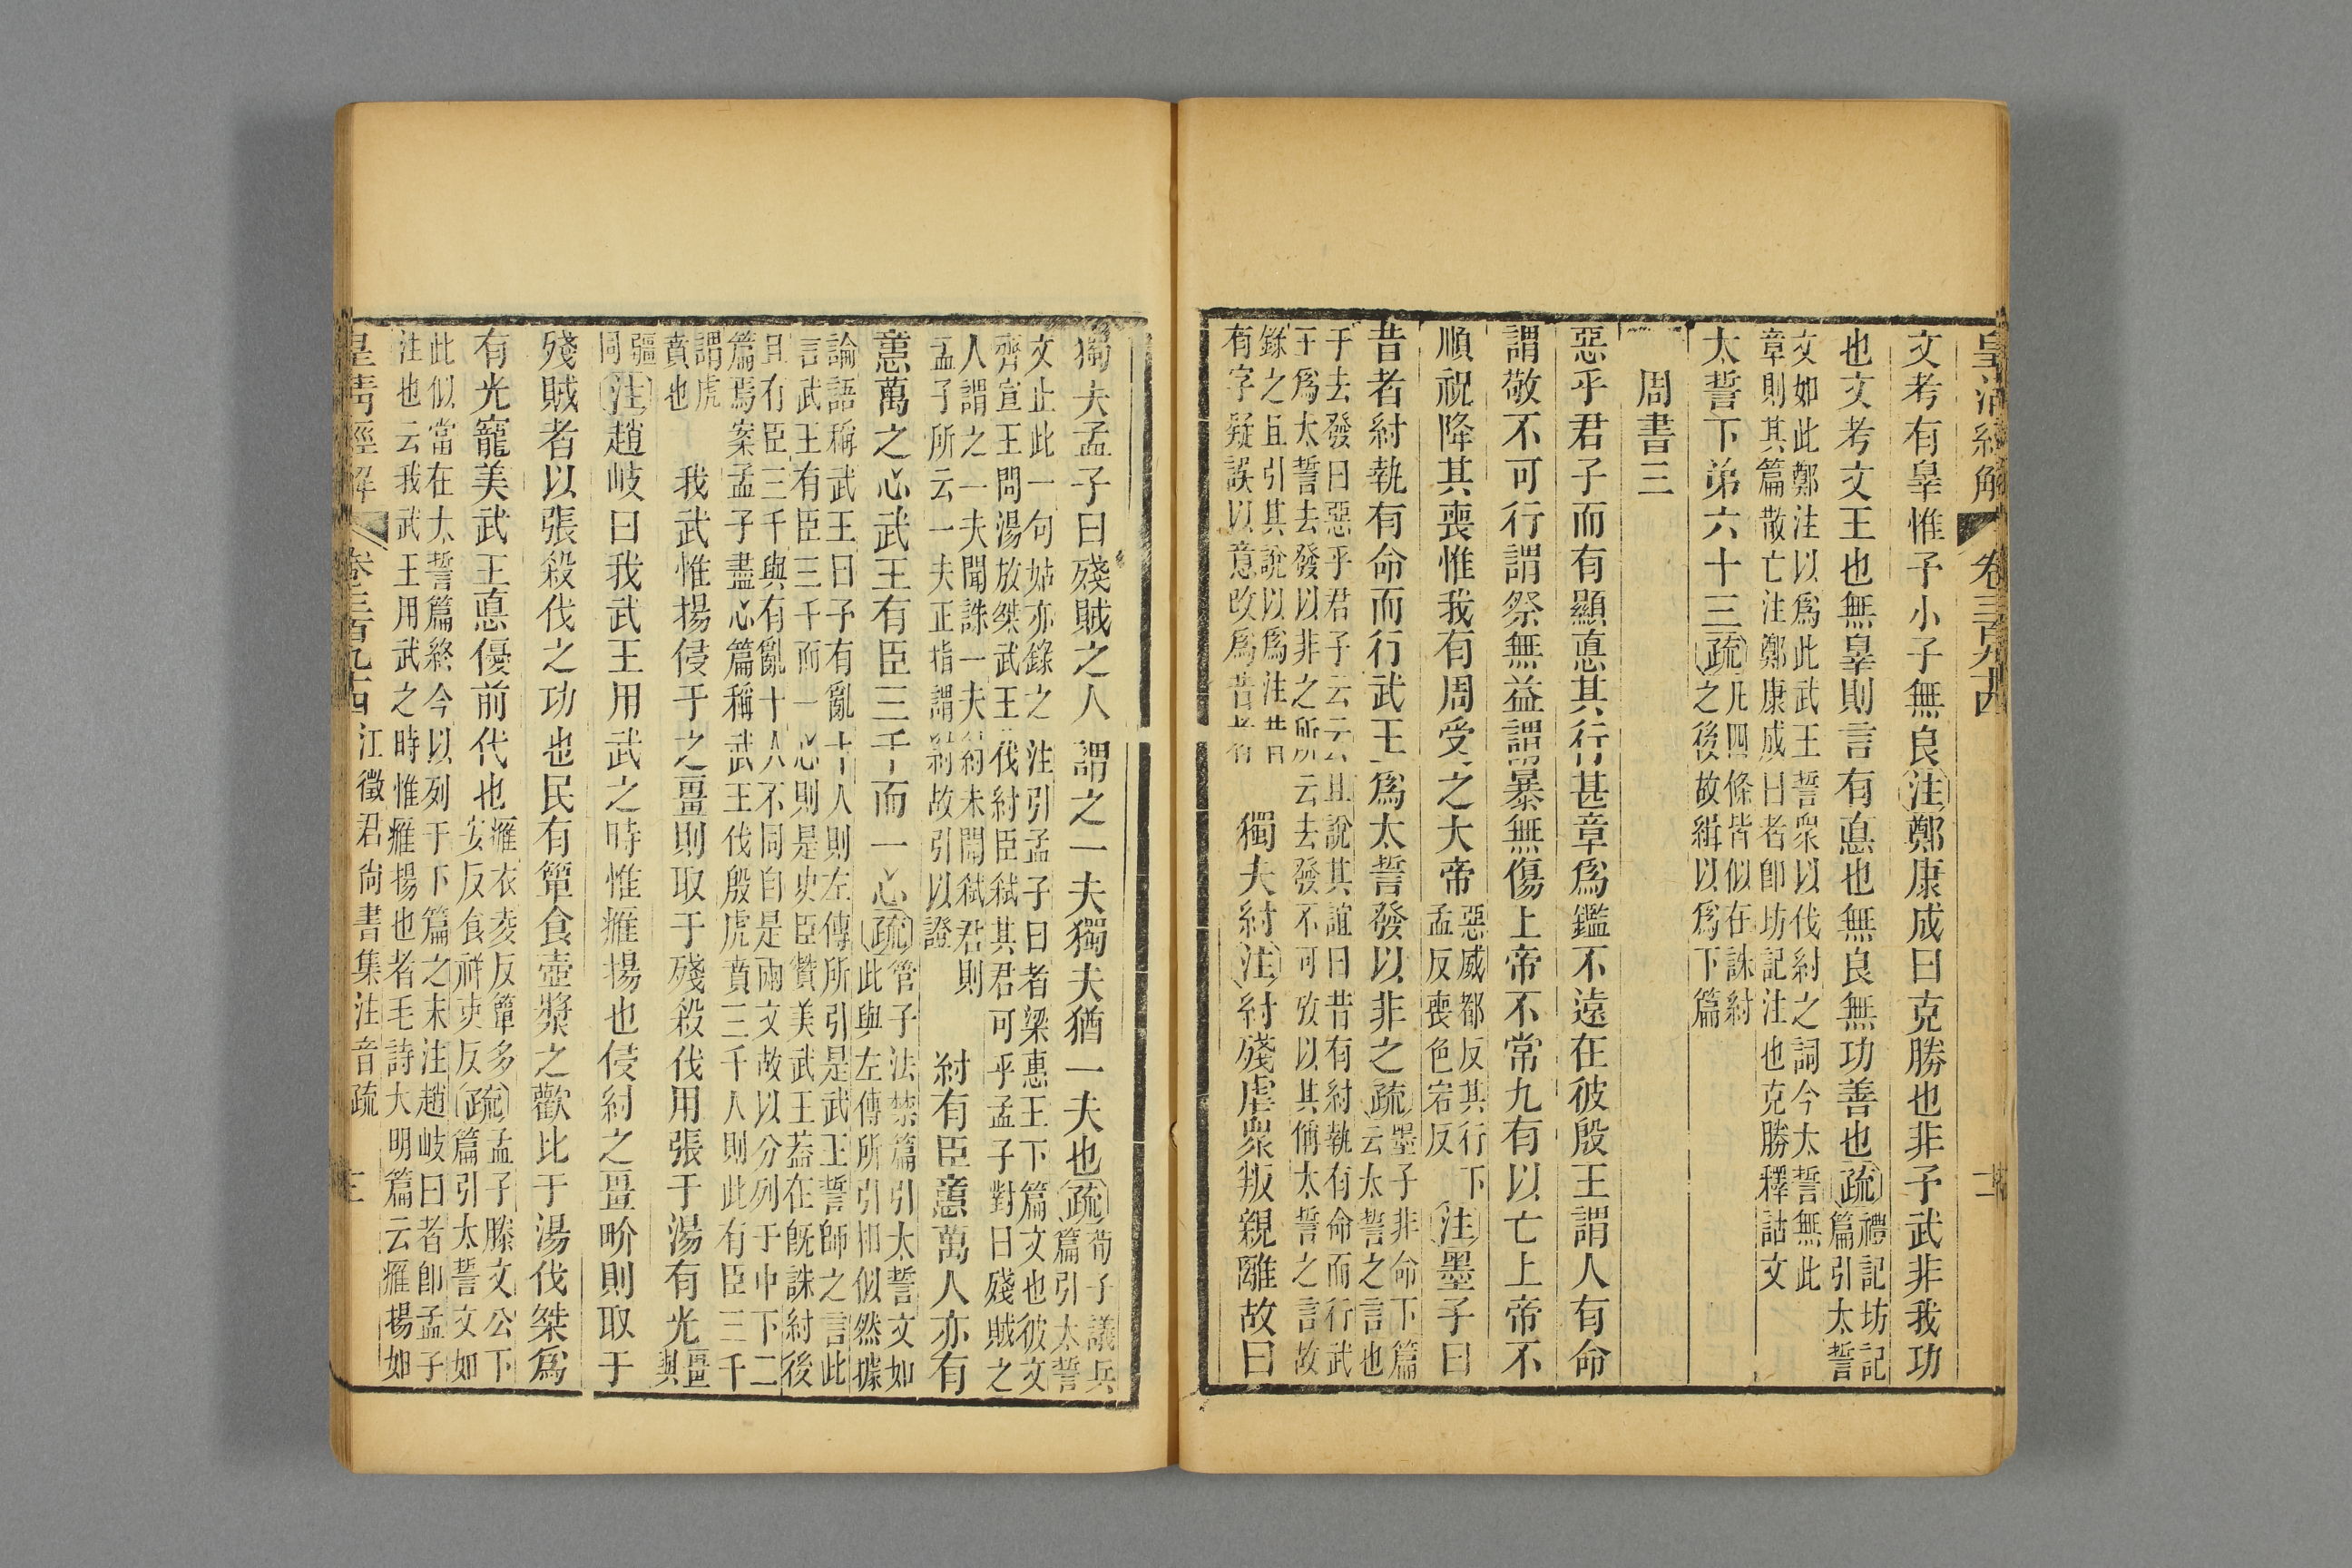 皇清經解 卷三百九十四
文考有辠惟予小子無良注鄭康成曰克勝也非予武非我功
也文考文王也無辠則言有悳也無良無功善也疏禮記坊記
篇引太誓
文如此鄭注以爲此武王誓衆以伐紂之詞今太誓無此
章則其篇散亡注鄭康成曰者卽坊記注也克勝釋詁文
太誓下弟六十三疏凡四條皆似在誅紂
之後故緝以爲下篇
周書三
惡乎君子而有顯悳其行甚章爲鑑不遠在彼殷王謂人有命
謂敬不可行謂祭無益謂暴無傷上帝不常九有以亡上帝不
順祝降其喪惟我有周受之大帝惡威都反其行下
孟反喪色宕反注墨子曰
昔者紂執有命而行武王爲太誓發以非之疏墨子非命下篇
云太誓之言也
于去發曰惡乎君子云云且說其誼曰昔有紂執有命而行武
王爲太誓去發以非之所云去發不可攷以其偁太誓之言故
錄之且引其說以爲注昔
有字疑誤以意改爲昔者有
獨夫紂注紂殘虐衆叛親離故曰
獨夫孟子曰殘賊之人謂之一夫獨夫猶一夫也疏荀子議兵
篇引太誓
文止此一句姑亦錄之注引孟子曰者梁惠王下篇文也彼文
齊宣王問湯放桀武王伐紂臣弒其君可乎孟子對曰殘賊之
人謂之一夫聞誅一夫紂未聞弒君則
孟子所云一夫正指謂紂故引以證
紂有臣意萬人亦有
意萬之心武王有臣三千而一心疏管子法禁篇引太誓文如
此與左傳所引卻似然據
論語稱武王曰予有亂十人則左傳所引是武王誓師之言此
言武王有臣三千而一心則是史臣贊美武王葢在旣誅紂後
且有臣三千與有亂十人不同自是兩文故以分列于中下二
篇焉案孟子盡心篇稱武王伐殷虎賁三千人則此有臣三千
謂虎
賁也
我武惟揚侵于之畺則取于殘殺伐用張于湯有光畺與
疆
同注趙岐曰我武王用武之時惟癕揚也侵紂之畺畍則取于
殘賊者以張殺伐之功也民有簞食壺漿之歡比于湯伐桀爲
有光寵美武王悳優前代也癕衣夌反簞多
安反食祥吏反疏孟子滕文公下
篇引太誓文如
此似當在太誓篇終今以列于下篇之末注趙岐曰者卽孟子
注也云我武王用武之時惟癕揚也者毛詩大明篇云癕揚如
皇清經解 卷三百九十四 江徵君尙書集注音疏 三